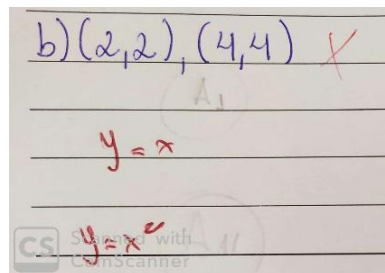 b) (2,2), (4,4) X
A₁
y = x
y = x²
CS Scanned with
CamScanner